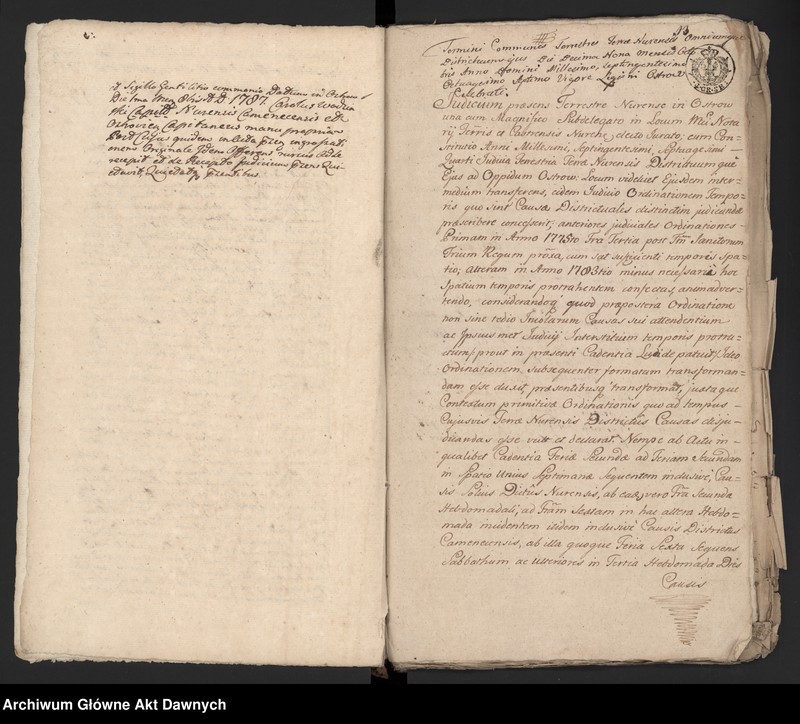 et Sigillo Gentilitio communio Datum in
Dalma Mey Obris A. D. 1787. Carolus
Capit. Nurensis Camenecensis et
Ostrovien. Capitaneus manu propria
mens Originale Idem Offerens rursus ad se
recepit et de Recepto Judicium præs. Qui-
etavit, Quietatq. præntibus.
18
Termini Communes Terrestres Terræ Nurensis Omniumque
Districtuum ejus Die Decima Nona Mensis Octo
bris Anno Domini Millesimo, Septingentesimo
Octuagesimo Septimo Vigore Legis in Ostrow
Celebrati
Judicium præsens Terrestre Nurense in Ostrow
una cum Magnifico Subdelegato in Locum Mci Nota
rij Terris et Castrensis Nurche, electo Jurato; cum Con-
stitutio Anni Millesimi, Septingentesimi, Septuagesimi
Quarti Judicia Terrestria Terræ Nurensis Districtuum qui
Ejus ad Oppidum Ostrow: Locum videlicet Ejusdem inter-
medium transferens, eidem Judicio Ordinationem Tempo-
ris quo sint Causæ Districtuales distinctim judicandæ
præscribere concesserit; anteriores judiciales Ordinationes
Primam in Anno 1775to Fra Tertia post Ftm Sanctorum
Trium Regum prøxa, cum sat sufficienti temporis Spa-
tio; alteram in Anno 1783tio minus necessariæ hoc
Spatium temporis protrahentem confectas, animadver-
tendo, considerandoq quod præpostera Ordinatione
non sine tedio Incolarum Causas sui attendentium
ac Ipsius met Judicij Interstitium temporis protra-
ctum prout in præsenti Cadentia Lucide patuit, Ideo
Ordinationem subsequenter formatum transforman-
dam esse duxit præsentibusq transformat, juxta que
Contextum primitivæ Ordinationis quo ad tempus
Cujusvis Terræ Nurensis Districtus Causas diju-
dicandas esse vult et declarat. Nempe ab Actu in
qualibet Cadentia Feriæ Secundæ ad Feriam Secundam
in Spatio Unius Septimanæ Sequentem inclusive, Cau-
sis Solius Dictus Nurensis, ab eaq vero Fra Secunda
Hebdomadali, ad Fram Sextam in hac altera Hebdo-
mada incidentem itidem inclusive Causis Districtus
Camenecensis, ab illa quoque Feria Sexta Sequens
Sabbathum ac Ulteriores in Tertia Hebdomada Dies
Causis
Archiwum Główne Akt Dawnych